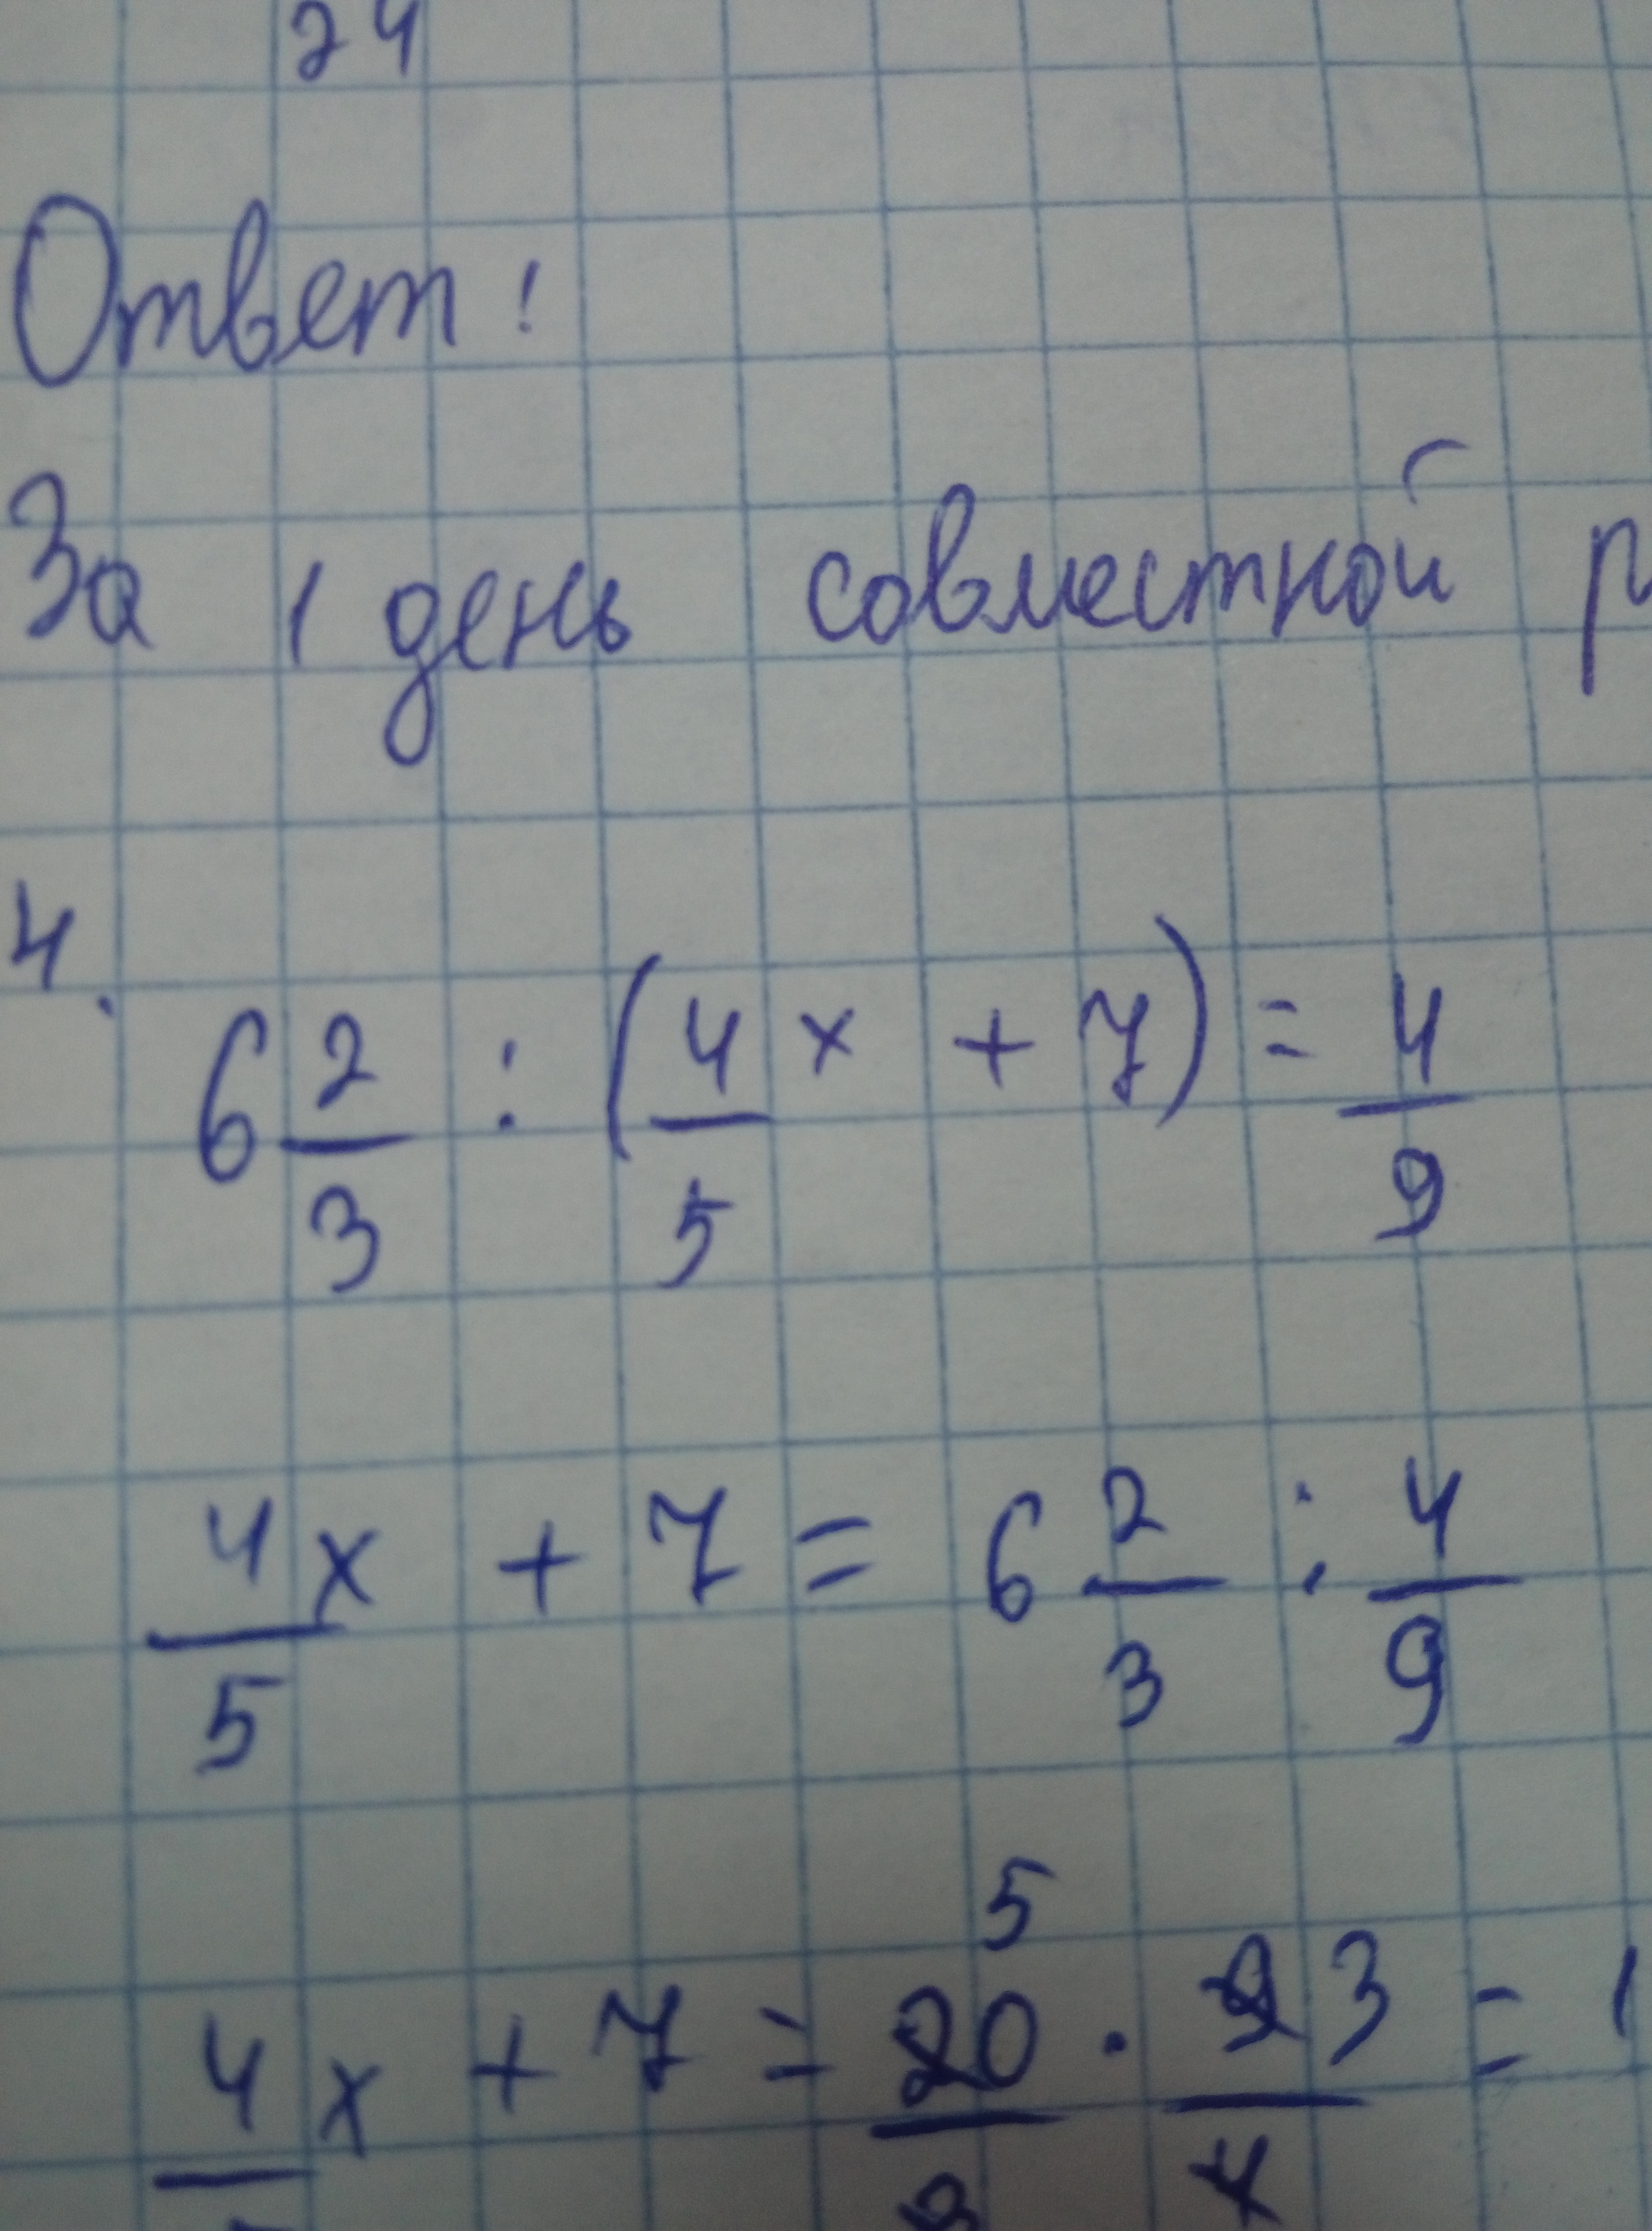 24
Ответ:
За 1 день совместной р
4.
6 2/3 : (4/5 x + 7) = 4/9
4/5 x + 7 = 6 2/3 : 4/9
5
4 x + 7 = 20/3 · 9 3/4 = 1